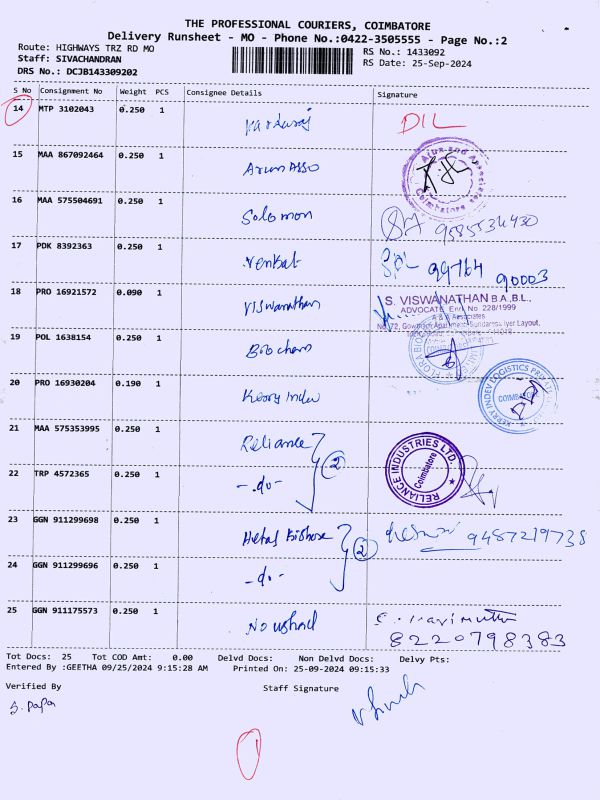 THE PROFESSIONAL COURIERS, COIMBATORE
Delivery Runsheet - MO - Phone No.:0422-3505555 - Page No.:2
Route: HIGHWAYS TRZ RD MO
RS No.: 1433092
Staff: SIVACHANDRAN
RS Date: 25-Sep-2024
DRS No.: DCJB143309202
S No Consignment No Weight PCS Consignee Details Signature
14 MTP 3102043 0.250 1 DIL
15 MAA 867092464 0.250 1 Arun Asso
Arjun and Associates
Coimbatore
16 MAA 575504691 0.250 1 Solomon
17 PDK 8392363 0.250 1 Venkat 99764 90003
18 PRO 16921572 0.090 1 Viswanathan
S. VISWANATHAN B.A.,B.L.,
ADVOCATE Enr. No 228/1999
A & R Associates
19 POL 1638154 0.250 1
20 PRO 16930204 0.190 1 Kerry Indev
KERRY INDEV LOGISTICS PRIVATE
21 MAA 575353995 0.250 1 Reliance 2
RELIANCE INDUSTRIES LTD.
Coimbatore
22 TRP 4572365 0.250 1 -do-
23 GGN 911299698 0.250 1 2 9487219738
24 GGN 911299696 0.250 1 -do-
25 GGN 911175573 0.250 1 Noushad
8220798383
Tot Docs: 25 Tot COD Amt: 0.00 Delvd Docs: Non Delvd Docs: Delvy Pts:
Entered By :GEETHA 09/25/2024 9:15:28 AM Printed On: 25-09-2024 09:15:33
Verified By Staff Signature
S. Papa